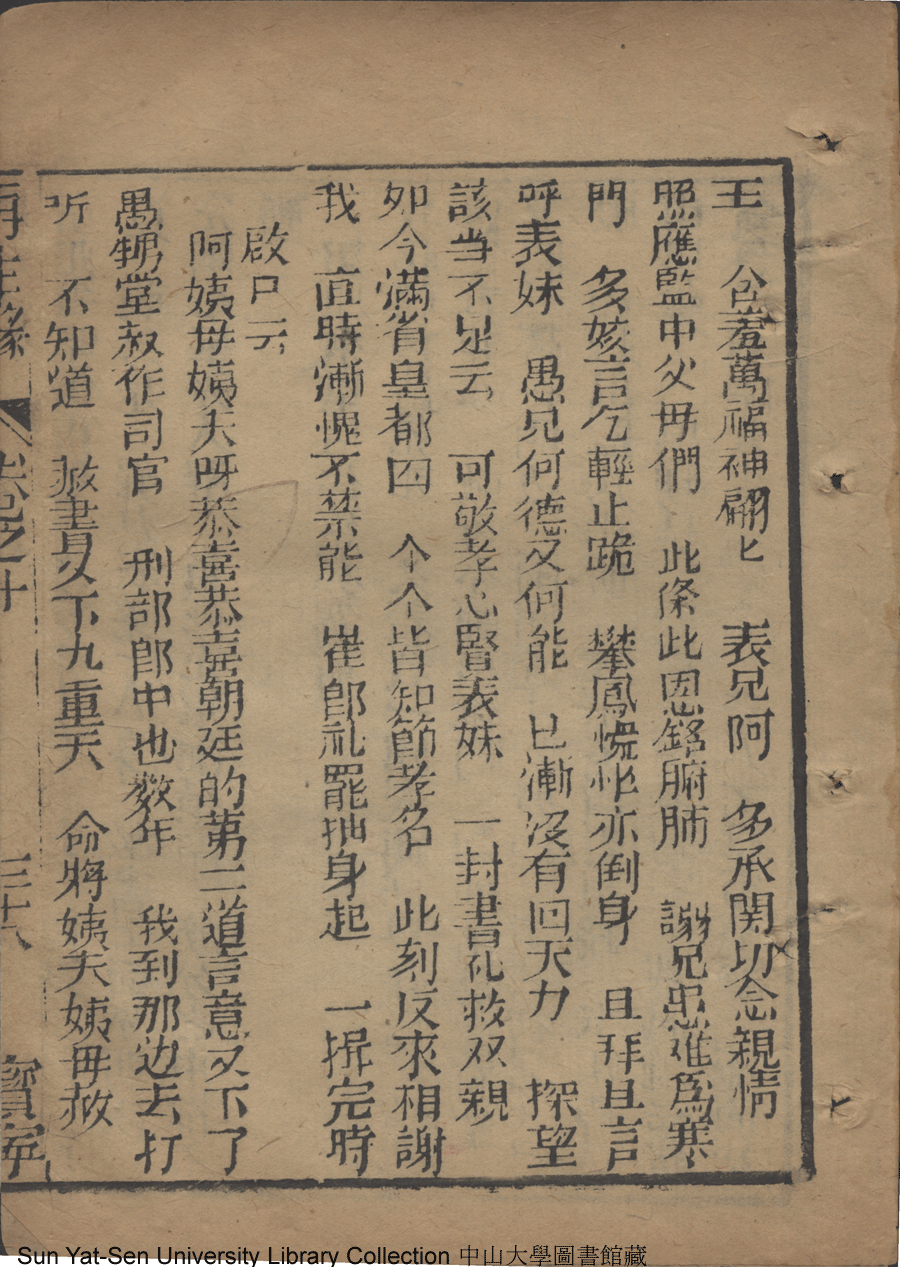 王　含羞萬福神翩匕　表兄阿　多承関切念親情
照應監中父母們　此條此恩銘腑肺　謝兄患难為寒
門　多姣言乞輕止跪　攀鳳慌忙亦倒身　且拜且言
呼表妹　愚兄何德又何能　匕漸没有回天力　探望
該当不足云　可敬孝心賢表妹　一封書札救双親
如今滿省皇都四　个个皆知節孝名　此刻反來相謝
我　直時漸愧不禁能　崔郎礼罷抽身起　一揖完時
啟口云
阿姨母姨夫呀恭喜恭喜朝廷的第二道言意又下了
愚甥堂叔作司官　刑部郎中也数年　我到那边去打
听　不知道　赦書又下九重天　命將姨夫姨母赦
再生緣　卷之十　三十八　寳寜
Sun Yat-Sen University Library Collection 中山大學圖書館藏